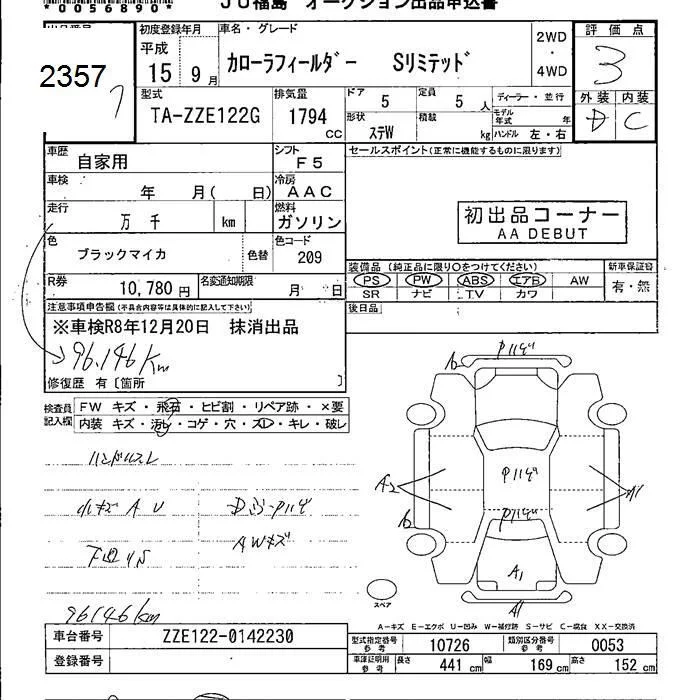 *0056890*
JU福島 オークション出品申込書
2357
初度登録年月 車名・グレード
平成 15年 9月
カローラフィールダー Sリミテッド
2WD・4WD
評価点
3
外装 内装
D C
型式 排気量
TA-ZZE122G 1794 CC
ドア 5 定員 5人 ディーラー・並行
形状 ステW 積載 kg モデル年式 年
ハンドル 左・右
車歴 自家用 シフト F5
車検 年 月( 日) 冷房 AAC
走行 万 千 km 燃料 ガソリン
色 ブラックマイカ 色替 色コード 209
R券 10,780円 名変通知期限 月 日
セールスポイント(正常に機能するものに限ります)
初出品コーナー
AA DEBUT
装備品 (純正品に限り○をつけてください) 新車保証書
PS PW ABS エアB AW 有・無
SR ナビ TV カワ
後日品
注意事項申告欄(不具合内容等は具体的に記入して下さい)
※車検R8年12月20日 抹消出品
96,146Km
修復歴 有〔箇所 〕
検査員記入欄
FW キズ・飛石・ヒビ割・リペア跡・×要
内装 キズ・汚レ・コゲ・穴・スレ・キレ・破レ
ハンドルスレ
小キズ A U
AWキズ
下廻りS
96146km
A2
A1
A1
スペア
A-キズ E-エクボ U-凹み W-補修跡 S-サビ C-腐食 XX-交換済
車台番号 ZZE122-0142230
登録番号
型式指定番号 参考 10726 類別区分番号 参考 0053
車庫証明用 参考 長さ 441cm 幅 169cm 高さ 152cm